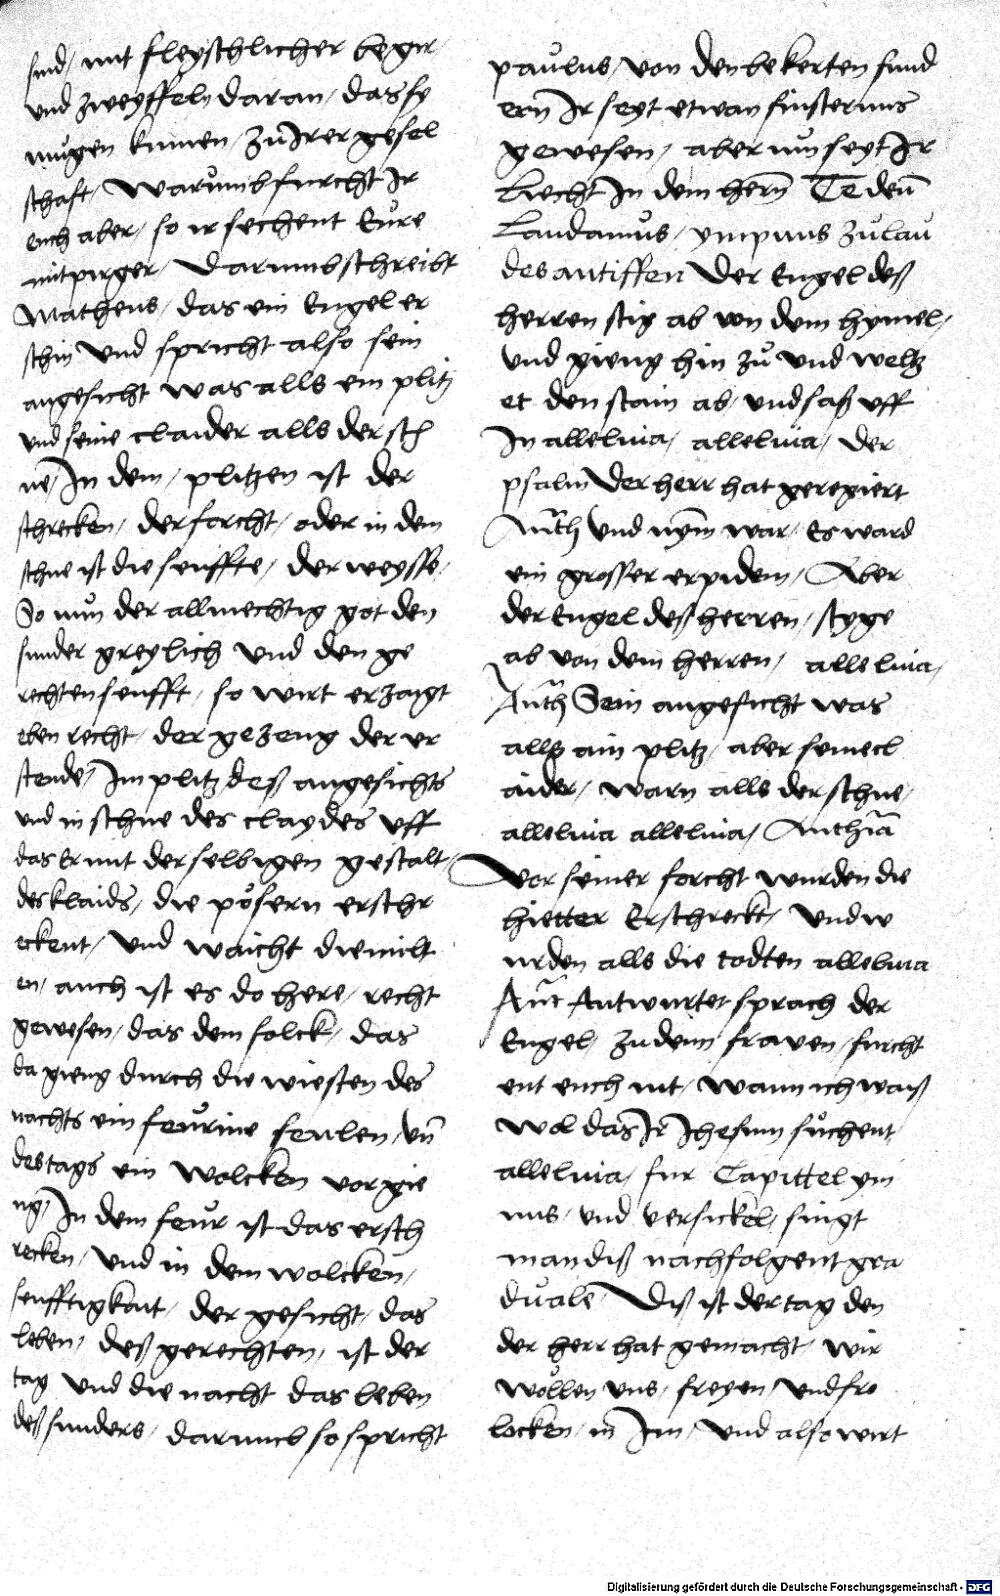 sind / mit fleyschlicher begir /
und zweyffeln daran / das sy
mu̇gen kumen zu̇ Irer gesel
schaft / warumb furcht Ir
euch aber / so ir sechent Eu̇re
mitpurger / Darumb schreibt
Matheus / das ein Engel er
schin und spricht also sein
angesicht was alls ein plitz
und seine claider alls der sch
ne / In dem / plitzen ist der
schrecken / der forcht / oder in dem
schne ist die senffte / der weysse /
So nu̇n der allmechtig got den
sunder greylich und den ge
rechten senfft / so wirt erzaigt
eben recht / der gezeug der ur
stende / Im plitz deß angesichts
und in schne des claydes uff
das Er mit der selbigen gestalt /
des klaids / die pösern erschr
eckent / und waicht die milt
en / auch ist es do here / recht
gewesen / das dem folck / das
da gieng durch die wiesten des
nachts ein feu̇rine seulen / un̄
des tags ein wolcken vor gie
ng / In dem feu̇r ist das ersch
recken / und in dem wolcken /
senfftigkait / der gesicht / das
leben / deß gerechten / ist der
tag und die nacht das leben
deß sunders / darumb so spricht
pau̇lus / von den bekerten sund
ern̄ Ir seyt etwan finsternus
gewesen / aber nu̇n seyt Ir
Liecht In dem hern̄ Te deu̅
Laudamu̇s / ympnus zu̇ lau
des antiffen Der Engel deß
herren stig ab von dem hymel /
und gieng hin zu̇ und weltz
et den stain ab / und saß uff
In alleluia / alleluia / der
psalm Der herr hat geregiert
Anth und nym̄ war / Es ward
ein grosser erpidem / Aber
der Engel deß herren / styge
ab von dem herren / alleluia /
Anth Sein angesicht was
alls ain plitz / aber seine cl
aider / warn alls der schne /
alleluia alleluia / Anthia
Vor seiner forcht wurden die
hietter Erschreckt / und w
urden alls die todten alleluia
Ant Antwurtet sprach der
Engel / zu denn frawen / furcht
ent euch nit / wann ich waiß
wol das Ir Jhesum su̇chent
alleluia / fur Capittel ym
nus / und versickel / singt
man diß nachfolgent gra
du̇ale / Diß ist der tag den
der herr hat gemacht / wir
wöllen uns / freyen / und fro
locken / in Im / und also wirt
Digitalisierung gefördert durch die Deutsche Forschungsgemeinschaft - DFG